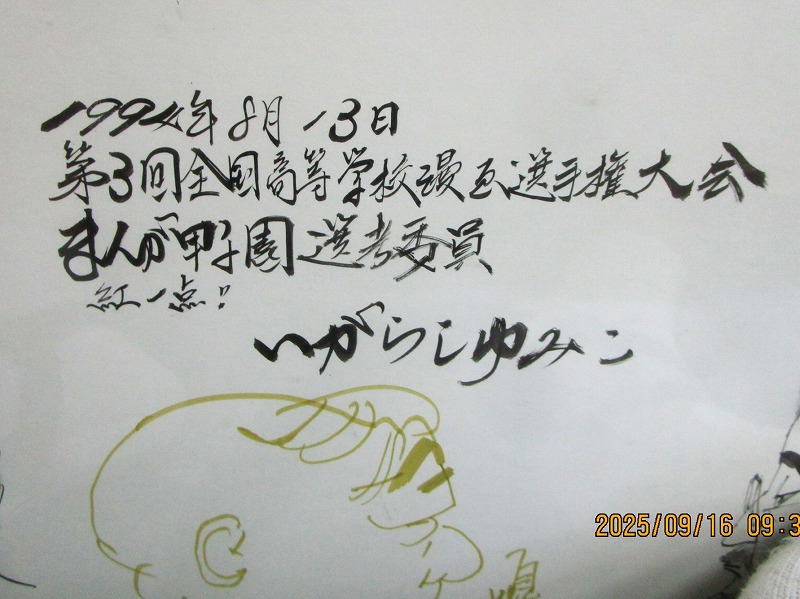 1994年8月13日
第3回全国高等学校漫画選手権大会
まんが甲子園選考委員
紅一点!!
いがらしゆみこ
2025/09/16 09:3